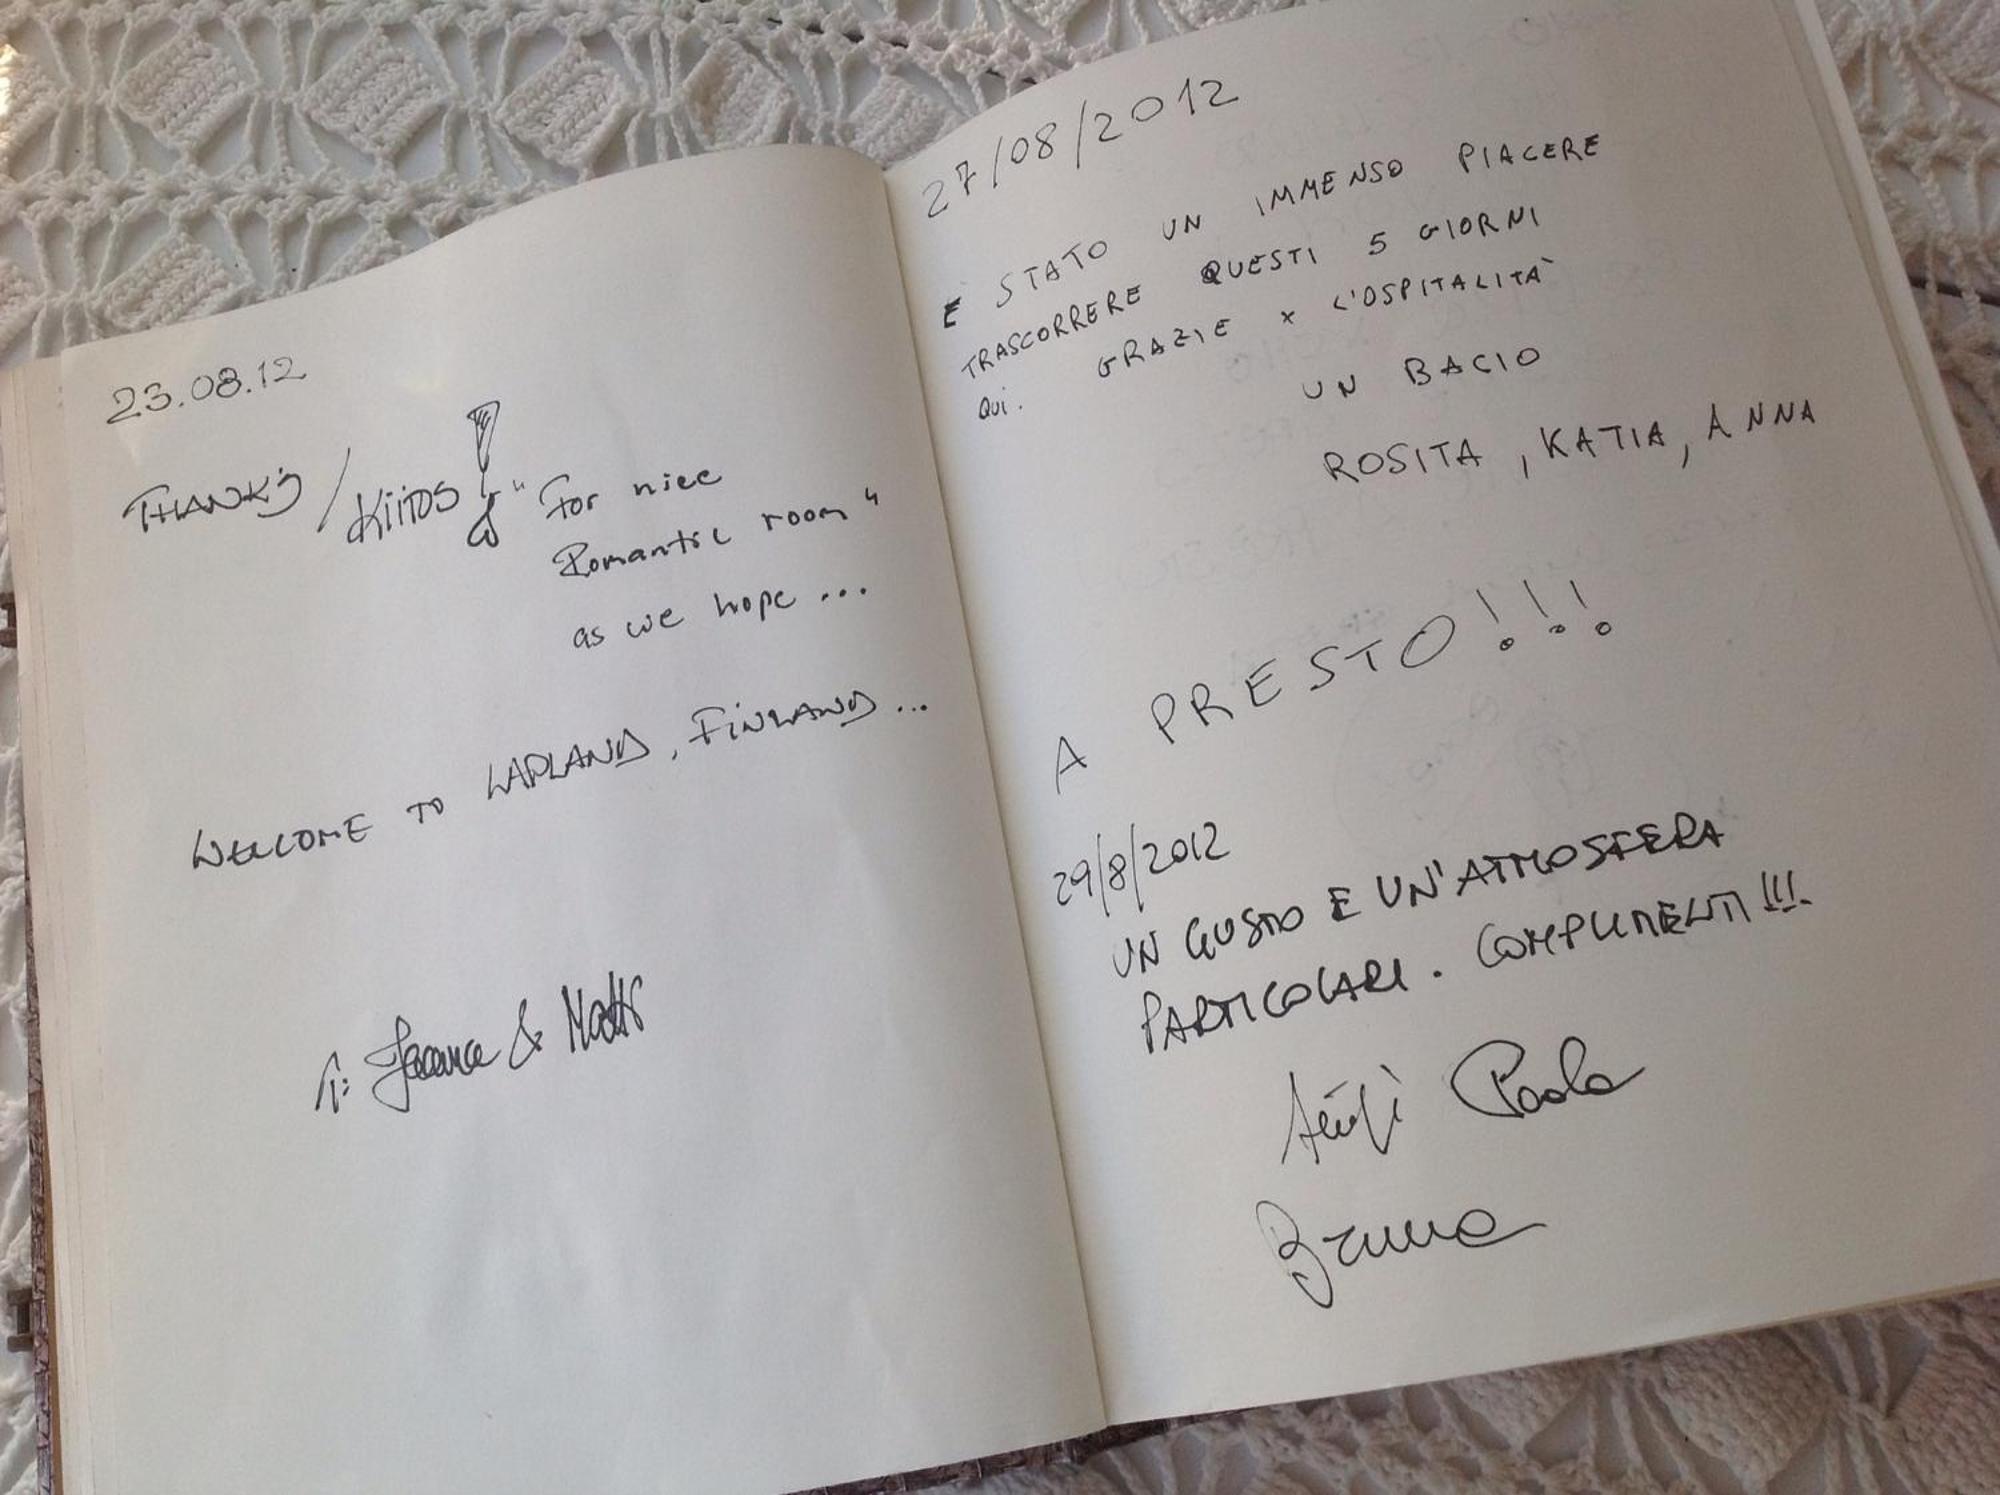 23.08.12
THANKS / KiiTOS ! "For nice
Romantic room"
as we hope ...
WELCOME TO LAPLAND, FINLAND ...
T: &
27/08/2012
E STATO UN IMMENSO PIACERE
TRASCORRERE QUESTI 5 GIORNI
QUI. GRAZIE x L'OSPITALITÀ
UN BACIO
ROSITA, KATIA, ANNA
A PRESTO!!!
29/8/2012
UN GUSTO E UN'ATMOSFERA
PARTICOLARI. COMPLIMENTI!!!
Paola
Bruna